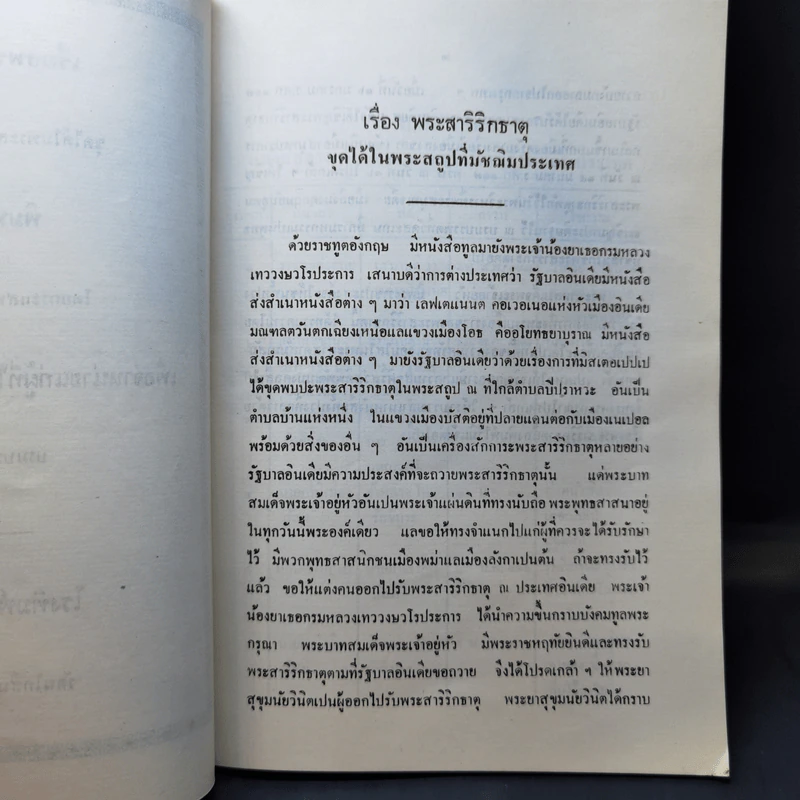 เรื่อง พระสาริริกธาตุ
ขุดได้ในพระสถูปที่มัชฌิมประเทศ
ด้วยราชทูตอังกฤษ มีหนังสือทูลมายังพระเจ้าน้องยาเธอกรมหลวง
เทววงษวโรประการ เสนาบดีว่าการต่างประเทศว่า รัฐบาลอินเดียมีหนังสือ
ส่งสำเนาหนังสือต่าง ๆ มาว่า เลฟเตแนนต คอเวอเนอแห่งหัวเมืองอินเดีย
มณฑลตวันตกเฉียงเหนือแลแขวงเมืองโอธ คืออโยทธยาบุราณ มีหนังสือ
ส่งสำเนาหนังสือต่าง ๆ มายังรัฐบาลอินเดียว่าด้วยเรื่องการที่มิสเตอเปปเป
ได้ขุดพบปะพระสาริริกธาตุในพระสถูป ณ ที่ใกล้ตำบลปิปราหวะ อันเป็น
ตำบลบ้านแห่งหนึ่ง ในแขวงเมืองบัสติอยู่ที่ปลายแดนต่อกับเมืองเนเปอล
พร้อมด้วยสิ่งของอื่น ๆ อันเป็นเครื่องสักการะพระสาริริกธาตุหลายอย่าง
รัฐบาลอินเดียมีความประสงค์ที่จะถวายพระสาริริกธาตุนั้น แด่พระบาท
สมเด็จพระเจ้าอยู่หัวอันเปนพระเจ้าแผ่นดินที่ทรงนับถือ พระพุทธสาสนาอยู่
ในทุกวันนี้พระองค์เดียว แลขอให้ทรงจำแนกไปแก่ผู้ที่ควรจะได้รับรักษา
ไว้ มีพวกพุทธสาสนิกชนเมืองพม่าแลเมืองลังกาเปนต้น ถ้าจะทรงรับไว้
แล้ว ขอให้แต่งคนออกไปรับพระสาริริกธาตุ ณ ประเทศอินเดีย พระเจ้า
น้องยาเธอกรมหลวงเทววงษวโรประการ ได้นำความขึ้นกราบบังคมทูลพระ
กรุณา พระบาทสมเด็จพระเจ้าอยู่หัว มีพระราชหฤทัยยินดีและทรงรับ
พระสาริริกธาตุตามที่รัฐบาลอินเดียขอถวาย จึงได้โปรดเกล้า ฯ ให้พระยา
สุขุมนัยวินิตเปนผู้ออกไปรับพระสาริริกธาตุ พระยาสุขุมนัยวินิตได้กราบ